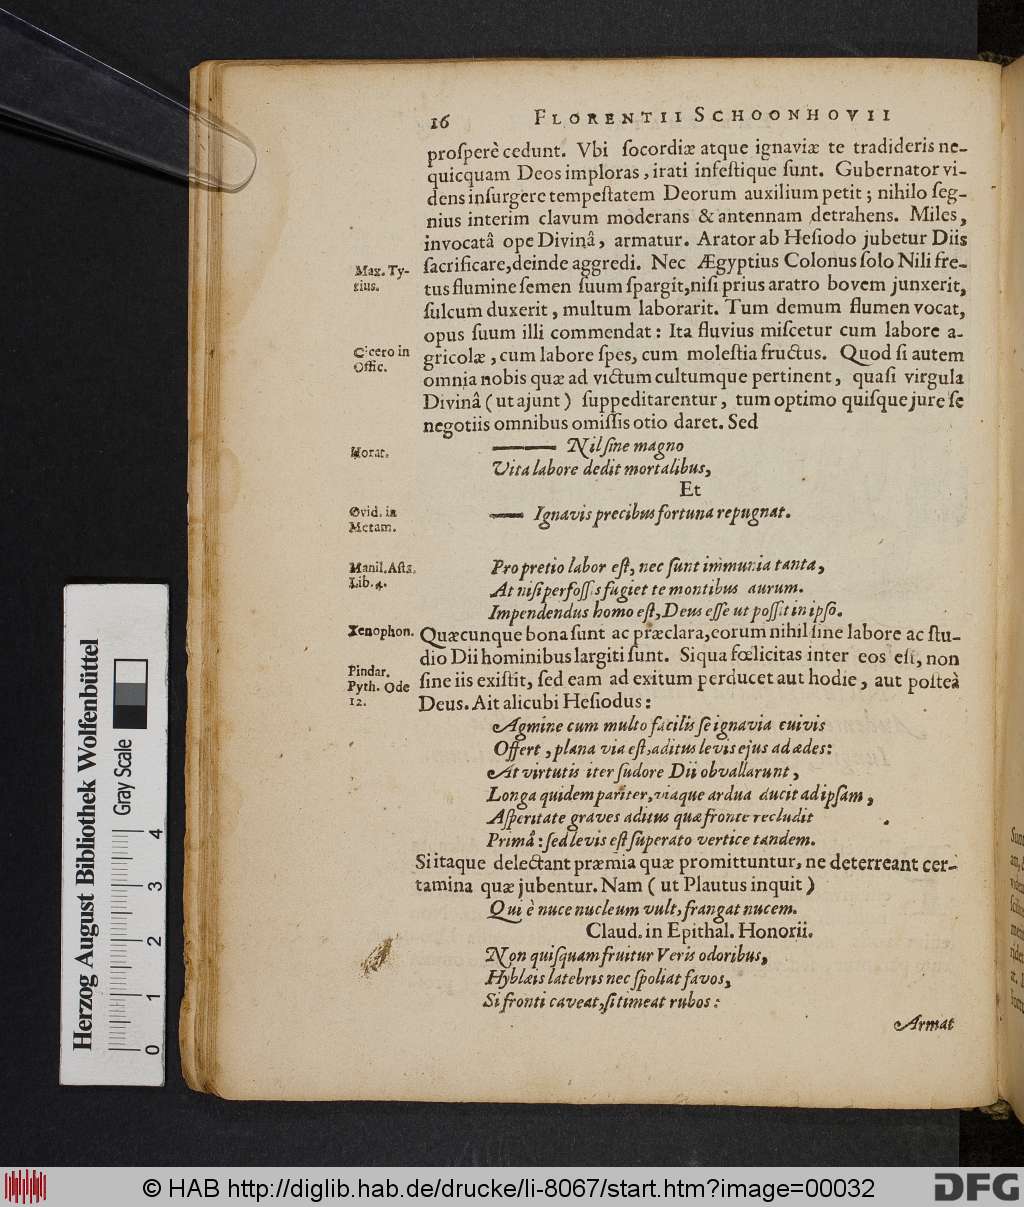 16 FLORENTII SCHOONHOVII
prosperè cedunt. Vbi socordiæ atque ignaviæ te tradideris ne-
quicquam Deos imploras, irati infestique sunt. Gubernator vi-
dens insurgere tempestatem Deorum auxilium petit; nihilo seg-
nius interim clavum moderans & antennam detrahens. Miles,
invocatâ ope Divinâ, armatur. Arator ab Hesiodo jubetur Diis
Max. Ty-
rius.
sacrificare, deinde aggredi. Nec Ægyptius Colonus solo Nili fre-
tus flumine semen suum spargit, nisi prius aratro bovem junxerit,
sulcum duxerit, multum laborarit. Tum demum flumen vocat,
opus suum illi commendat: Ita fluvius miscetur cum labore a-
Cicero in
Offic.
gricolæ, cum labore spes, cum molestia fructus. Quod si autem
omnia nobis quæ ad victum cultumque pertinent, quasi virgula
Divinâ (ut ajunt) suppeditarentur, tum optimo quisque jure se
negotiis omnibus omissis otio daret. Sed
Horat.
—— Nil sine magno
Vita labore dedit mortalibus,
Et
Ovid. in
Metam.
— Ignavis precibus fortuna repugnat.
Manil. Ast.
Lib. 4.
Pro pretio labor est, nec sunt immunia tanta,
At nisi perfossis fugiet te montibus aurum.
Impendendus homo est, Deus esse ut possit in ipso.
Xenophon.
Quæcunque bona sunt ac præclara, eorum nihil sine labore ac stu-
dio Dii hominibus largiti sunt. Siqua fœlicitas inter eos est, non
Pindar.
Pyth. Ode
12.
sine iis existit, sed eam ad exitum perducet aut hodie, aut posteà
Deus. Ait alicubi Hesiodus:
Agmine cum multo facilis se ignavia cuivis
Offert, plana via est, aditus levis ejus ad ædes:
At virtutis iter sudore Dii obvallarunt,
Longa quidem pariter, viaque ardua ducit ad ipsam,
Asperitate graves aditus quæ fronte recludit
Primâ: sed levis est superato vertice tandem.
Si itaque delectant præmia quæ promittuntur, ne deterreant cer-
tamina quæ jubentur. Nam (ut Plautus inquit)
Qui è nuce nucleum vult, frangat nucem.
Claud. in Epithal. Honorii.
Non quisquam fruitur Veris odoribus,
Hyblæis latebris nec spoliat favos,
Si fronti caveat, si timeat rubos:
Armat
Herzog August Bibliothek Wolfenbüttel
Gray Scale
0 1 2 3 4
© HAB http://diglib.hab.de/drucke/li-8067/start.htm?image=00032
DFG